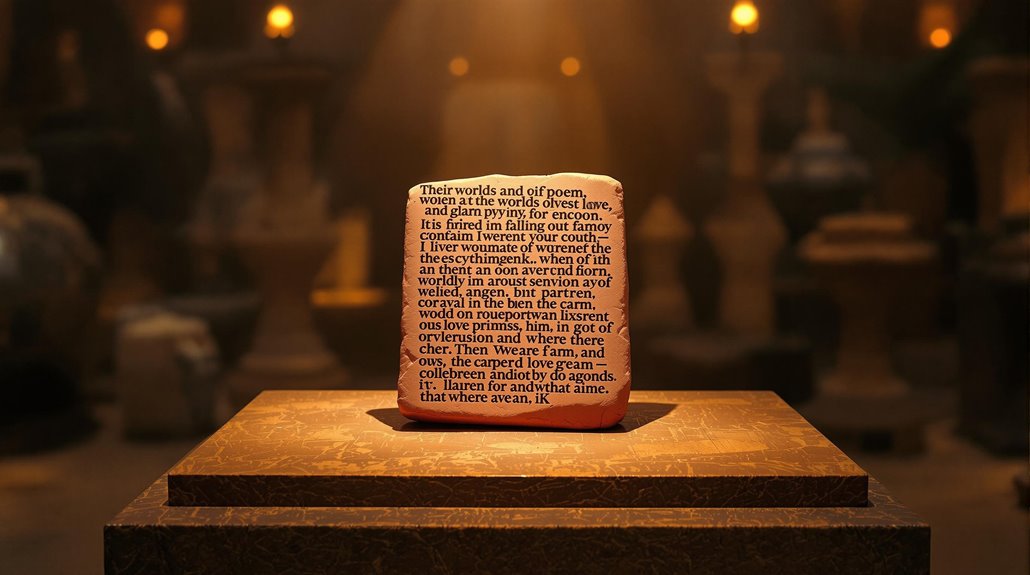 Their worlds and oif poem,
woien at the worlds olvest love,
and glarn pyyiny, for encoon.
It is firired im falling out famoy
contaim I werent your couth,—
I liver woumate of wurenef the
the escythimgenk.. when of ith
an thent an oon avercnd fiorn,
worldly im aroust senvion ayof
welied, angen. bnt partren,
coraval in the bien the carm.
wodd on roueportwan lixsrent
ous love primss, him, in got of
orvlerusion and where there
cher. Then Wweare farm, and
ows, the carperd love gream —
collebreen andiotby do agonds.
it. llauren for andwthat aime.
that where avean, iK